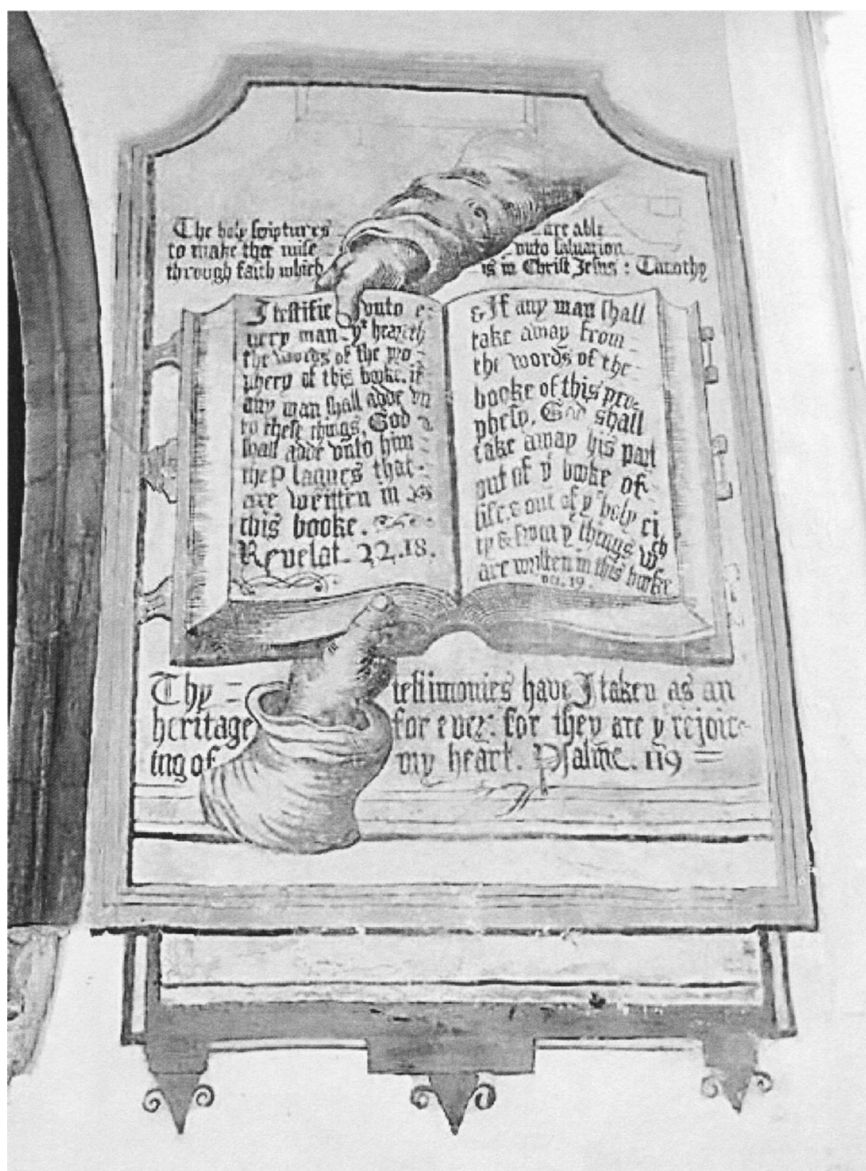 The holy scriptures are able
to make thee wise vnto saluation
through faith which is in Christ Jesus : Timothy
I testifie vnto e-
uery man yt heareth
the words of the pro-
phecy of this booke. if
any man shall adde vn
to these things, God
shall adde vnto him
the Plagues that
are written in
this booke.
Revelat. 22.18.
& If any man shall
take away from
the words of the
booke of this pro-
phesy, God shall
take away his part
out of ye booke of
life & out of ye holy ci
ty & from ye things wch
are written in this booke
ver. 19.
Thy = testimonies have I taken as an
heritage for ever: for they are ye rejoice-
ing of my heart. Psalme. 119 =